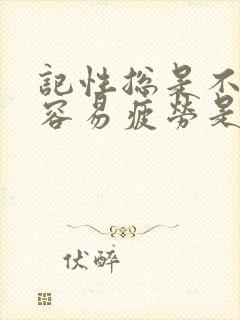 記性總是不
容易疲勞是
伏醉